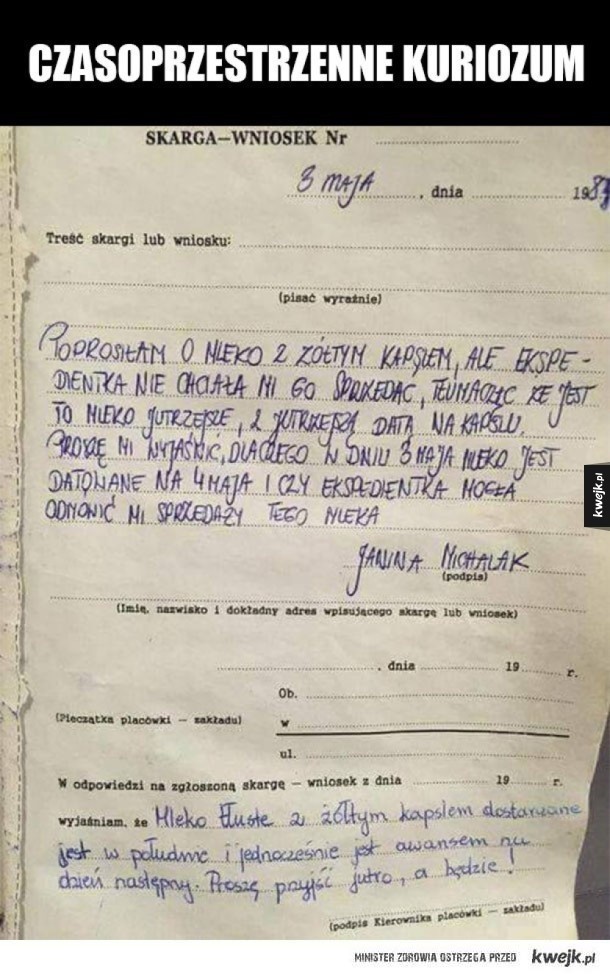 CZASOPRZESTRZENNE KURIOZUM
SKARGA—WNIOSEK Nr
3 MAJA, dnia 1987
Treść skargi lub wniosku:
(pisać wyraźnie)
POPROSIŁAM O MLEKO Z ŻÓŁTYM KAPSLEM, ALE EKSPE-
DIENTKA NIE CHCIAŁA MI GO SPRZEDAĆ, TŁUMACZĄC ŻE JEST
TO MLEKO JUTRZEJSZE, Z JUTRZEJSZĄ DATĄ NA KAPSLU.
PROSZĘ MI WYJAŚNIĆ, DLACZEGO W DNIU 3 MAJA MLEKO JEST
DATOWANE NA 4 MAJA I CZY EKSPEDIENTKA MOGŁA
ODMÓWIĆ MI SPRZEDAŻY TEGO MLEKA
JANINA MICHALAK
(podpis)
(Imię, nazwisko i dokładny adres wpisującego skargę lub wniosek)
, dnia 19 r.
Ob.
(Pieczątka placówki — zakładu) w
ul.
W odpowiedzi na zgłoszoną skargę — wniosek z dnia 19 r.
wyjaśniam, że Mleko tłuste z żółtym kapslem dostarczane
jest w południe i jednocześnie jest awansem na
dzień następny. Proszę przyjść jutro, a będzie!
(podpis Kierownika placówki — zakładu)
kwejk.pl
MINISTER ZDROWIA OSTRZEGA PRZED kwejk.pl